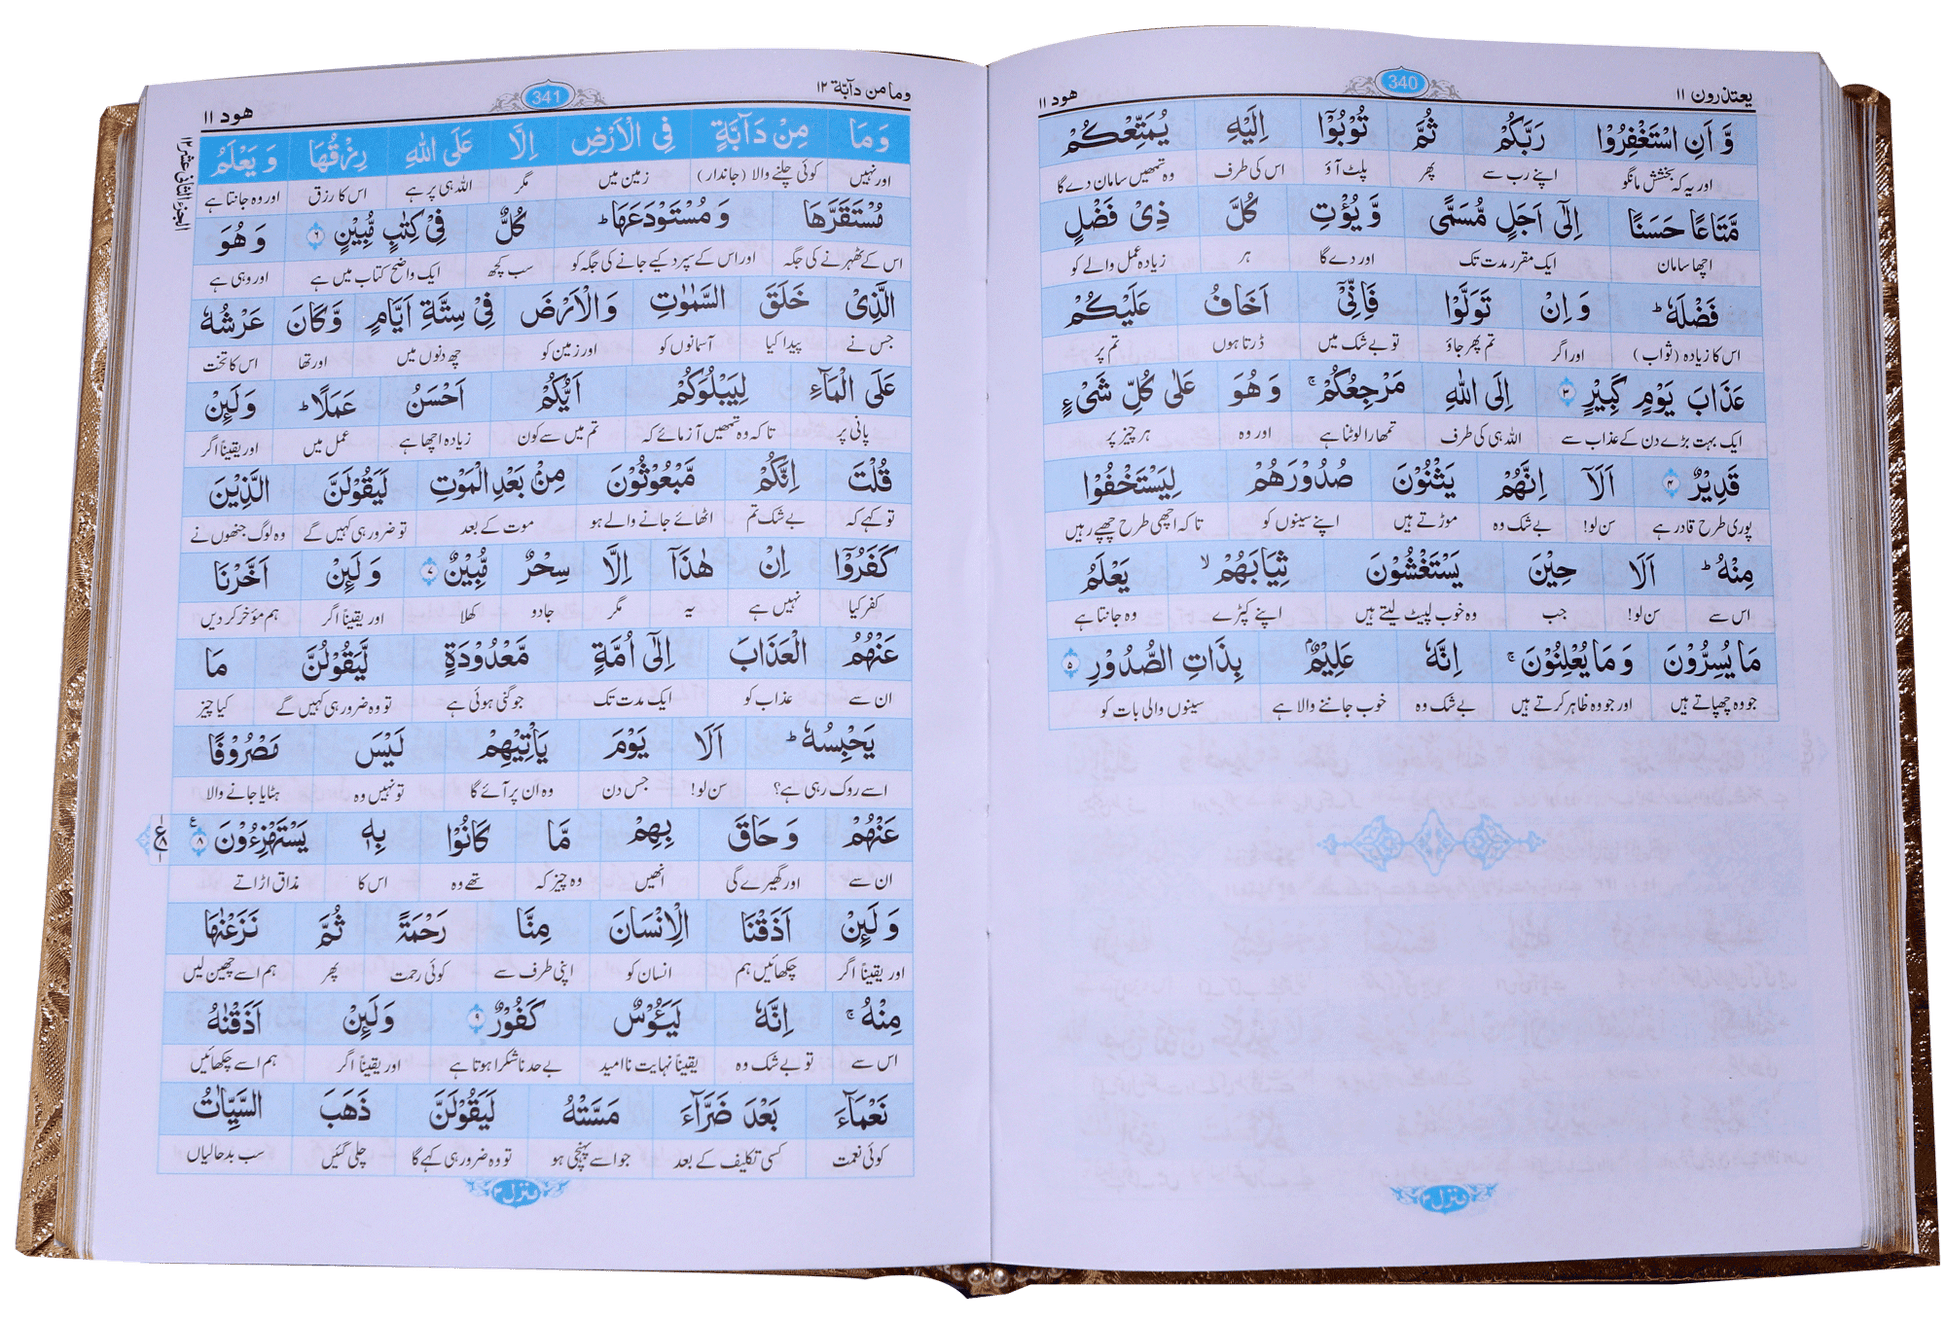 یعتذرون ۱۱
340
ھود ۱۱
وَّ اَنِ اسْتَغْفِرُوْا رَبَّكُمْ ثُمَّ تُوْبُوْۤا اِلَیْهِ یُمَتِّعْكُمْ
اور یہ کہ بخشش مانگو اپنے رب سے پھر پلٹ آؤ اس کی طرف وہ تمھیں سامان دے گا
مَّتَاعًا حَسَنًا اِلٰۤی اَجَلٍ مُّسَمًّی وَّ یُؤْتِ كُلَّ ذِیْ فَضْلٍ
اچھا سامان ایک مقرر مدت تک اور دے گا ہر زیادہ عمل والے کو
فَضْلَهٗ ؕ وَ اِنْ تَوَلَّوْا فَاِنِّیْۤ اَخَافُ عَلَیْكُمْ
اس کا زیادہ (ثواب) اور اگر تم پھر جاؤ تو بے شک میں ڈرتا ہوں تم پر
عَذَابَ یَوْمٍ كَبِیْرٍ ۳ اِلَی اللّٰهِ مَرْجِعُكُمْ ۚ وَ هُوَ عَلٰی كُلِّ شَیْءٍ
ایک بہت بڑے دن کے عذاب سے اللہ ہی کی طرف تمھارا لوٹنا ہے اور وہ ہر چیز پر
قَدِیْرٌ ۴ اَلَاۤ اِنَّهُمْ یَثْنُوْنَ صُدُوْرَهُمْ لِیَسْتَخْفُوْا
پوری طرح قادر ہے سن لو! بے شک وہ موڑتے ہیں اپنے سینوں کو تا کہ اچھی طرح چھپے رہیں
مِنْهُ ؕ اَلَا حِیْنَ یَسْتَغْشُوْنَ ثِیَابَهُمْ ۙ یَعْلَمُ
اس سے سن لو! جب وہ خوب لپیٹ لیتے ہیں اپنے کپڑے وہ جانتا ہے
مَا یُسِرُّوْنَ وَ مَا یُعْلِنُوْنَ ۚ اِنَّهٗ عَلِیْمٌۢ بِذَاتِ الصُّدُوْرِ ۵
جو وہ چھپاتے ہیں اور جو وہ ظاہر کرتے ہیں بے شک وہ خوب جاننے والا ہے سینوں والی بات کو
منزل ۳
وما من دآبة ۱۲
341
ھود ۱۱
الجزء الثانی عشر ۱۲
وَ مَا مِنْ دَآبَّةٍ فِی الْاَرْضِ اِلَّا عَلَی اللّٰهِ رِزْقُهَا وَ یَعْلَمُ
اور نہیں کوئی چلنے والا (جاندار) زمین میں مگر اللہ ہی پر ہے اس کا رزق اور وہ جانتا ہے
مُسْتَقَرَّهَا وَ مُسْتَوْدَعَهَا ؕ كُلٌّ فِیْ كِتٰبٍ مُّبِیْنٍ ۶ وَ هُوَ
اس کے ٹھہرنے کی جگہ اور اس کے سپرد کیے جانے کی جگہ کو سب کچھ ایک واضح کتاب میں ہے اور وہی ہے
الَّذِیْ خَلَقَ السَّمٰوٰتِ وَ الْاَرْضَ فِیْ سِتَّةِ اَیَّامٍ وَّ كَانَ عَرْشُهٗ
جس نے پیدا کیا آسمانوں کو اور زمین کو چھ دنوں میں اور تھا اس کا تخت
عَلَی الْمَآءِ لِیَبْلُوَكُمْ اَیُّكُمْ اَحْسَنُ عَمَلًا ؕ وَ لَىِٕنْ
پانی پر تا کہ وہ تمھیں آزمائے کہ تم میں سے کون زیادہ اچھا ہے عمل میں اور یقیناً اگر
قُلْتَ اِنَّكُمْ مَّبْعُوْثُوْنَ مِنْۢ بَعْدِ الْمَوْتِ لَیَقُوْلَنَّ الَّذِیْنَ
تو کہے کہ بے شک تم اٹھائے جانے والے ہو موت کے بعد تو ضرور ہی کہیں گے وہ لوگ جنھوں نے
كَفَرُوْۤا اِنْ هٰذَاۤ اِلَّا سِحْرٌ مُّبِیْنٌ ۷ وَ لَىِٕنْ اَخَّرْنَا
کفر کیا نہیں ہے یہ مگر جادو کھلا اور یقیناً اگر ہم مؤخر کر دیں
عَنْهُمُ الْعَذَابَ اِلٰۤی اُمَّةٍ مَّعْدُوْدَةٍ لَّیَقُوْلُنَّ مَا
ان سے عذاب کو ایک مدت تک جو گنی ہوئی ہے تو وہ ضرور ہی کہیں گے کیا چیز
یَحْبِسُهٗ ؕ اَلَا یَوْمَ یَاْتِیْهِمْ لَیْسَ مَصْرُوْفًا
اسے روک رہی ہے؟ سن لو! جس دن وہ ان پر آئے گا تو نہیں وہ ہٹایا جانے والا
عَنْهُمْ وَ حَاقَ بِهِمْ مَّا كَانُوْا بِهٖ یَسْتَهْزِءُوْنَ ۸
ان سے اور گھیرے گی انھیں وہ چیز کہ تھے وہ اس کا مذاق اڑاتے
وَ لَىِٕنْ اَذَقْنَا الْاِنْسَانَ مِنَّا رَحْمَةً ثُمَّ نَزَعْنٰهَا
اور یقیناً اگر چکھائیں ہم انسان کو اپنی طرف سے کوئی رحمت پھر ہم اسے چھین لیں
مِنْهُ ۚ اِنَّهٗ لَیَـُٔوْسٌ كَفُوْرٌ ۹ وَ لَىِٕنْ اَذَقْنٰهُ
اس سے تو بے شک وہ یقیناً نہایت نا امید بے حد ناشکرا ہوتا ہے اور یقیناً اگر ہم اسے چکھائیں
نَعْمَآءَ بَعْدَ ضَرَّآءَ مَسَّتْهُ لَیَقُوْلَنَّ ذَهَبَ السَّیِّاٰتُ
کوئی نعمت کسی تکلیف کے بعد جو اسے پہنچی ہو تو وہ ضرور ہی کہے گا چلی گئیں سب بدحالیاں
منزل ۳